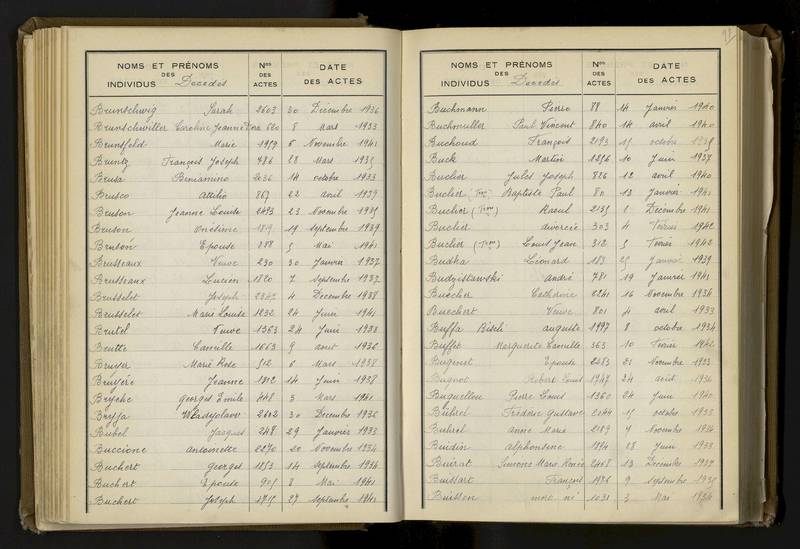 NOMS ET PRÉNOMS DES INDIVIDUS Décédés Nos DES ACTES DATE DES ACTES
Brunschwig Sarah 2603 30 Décembre 1936
Brunschwiller Caroline Jeanne 620 8 Mars 1933
Brunsfeld Marie 1959 6 Novembre 1941
Bruntz François Joseph 486 28 Mars 1935
Brusa Beniamino 2036 14 octobre 1933
Brusco Attilio 867 22 avril 1939
Bruson Jeanne Louise 2493 23 Novembre 1935
Bruson Onésime 1819 19 septembre 1939
Bruson Epouse 888 5 Mai 1941
Brusseaux Veuve 230 30 Janvier 1937
Brusseaux Lucien 1820 7 septembre 1937
Brusselet Joseph 2342 4 Decembre 1938
Brusselet Marie Louise 1232 24 Juin 1941
Brutel Veuve 1363 24 Juin 1938
Brutte Camille 1663 9 aout 1936
Bruyer Marie Rose 512 6 Mars 1938
Bruyère Jeanne 1302 14 Juin 1938
Bryche Georges Emile 448 3 Mars 1941
Bryja Wladyslaw 2602 30 Decembre 1936
Bubel Jacques 248 29 Janvier 1933
Buccione antoinette 2270 20 Novembre 1934
Buchert Georges 1853 14 septembre 1934
Buchert Epouse 905 8 Mai 1941
Buchert Joseph 1715 27 septembre 1941
NOMS ET PRÉNOMS DES INDIVIDUS Décédés Nos DES ACTES DATE DES ACTES
Buchmann Pierre 88 14 Janvier 1940
Buchmuller Paul Vincent 840 14 avril 1940
Buchoud François 2193 15 octobre 1935
Buck Martin 1256 10 Juin 1937
Buclier Jules Joseph 826 12 avril 1940
Buclier Baptiste Paul 80 13 Janvier 1941
Buclier Raoul 2135 8 Décembre 1941
Buclier divorcée 303 4 Février 1942
Buclier Louis Jean 312 5 Février 1942
Budka Léonard 183 25 Janvier 1939
Budzislawski andré 781 19 Janvier 1941
Buecher Catherine 2241 16 Novembre 1934
Buechert Veuve 801 4 avril 1933
Buffa Biseli auguste 1997 8 octobre 1934
Buffet Marguerite Camille 363 10 Février 1942
Bugenet Epouse 2253 21 Novembre 1933
Bugnot Robert Louis 1747 24 août 1936
Buguellou Pierre Louis 1360 24 Juin 1940
Bührel Frédéric Gustave 2044 15 octobre 1933
Buhrel anne Marie 2189 9 Novembre 1934
Buidin alphonsine 1394 28 Juin 1933
Buirat Simone Marie Renée 2468 13 Decembre 1937
Buissart François 1986 9 septembre 1935
Buisson mort né 1031 3 Mai 1934